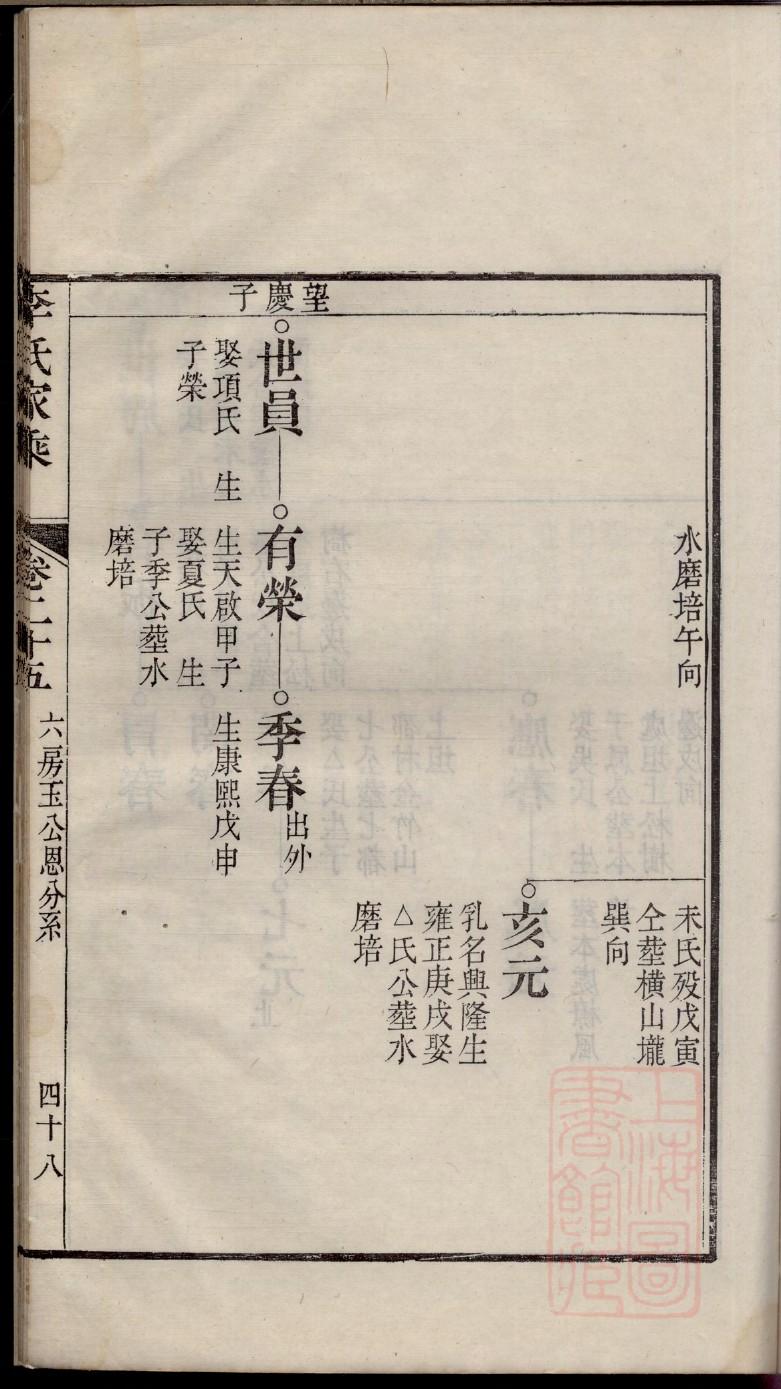 水磨培午向
未氏歿戊寅
仝塟橫山壠
巽向
亥元
乳名興隆生
雍正庚戌娶
△氏公塟水
磨培
望慶子
世員
娶項氏　生
子榮
有榮
生天啟甲子
娶夏氏　生
子季公塟水
磨培
季春出外
生康熙戊申
李氏家乘
卷二十五
六房玉公恩分系
四十八
上海圖書館藏